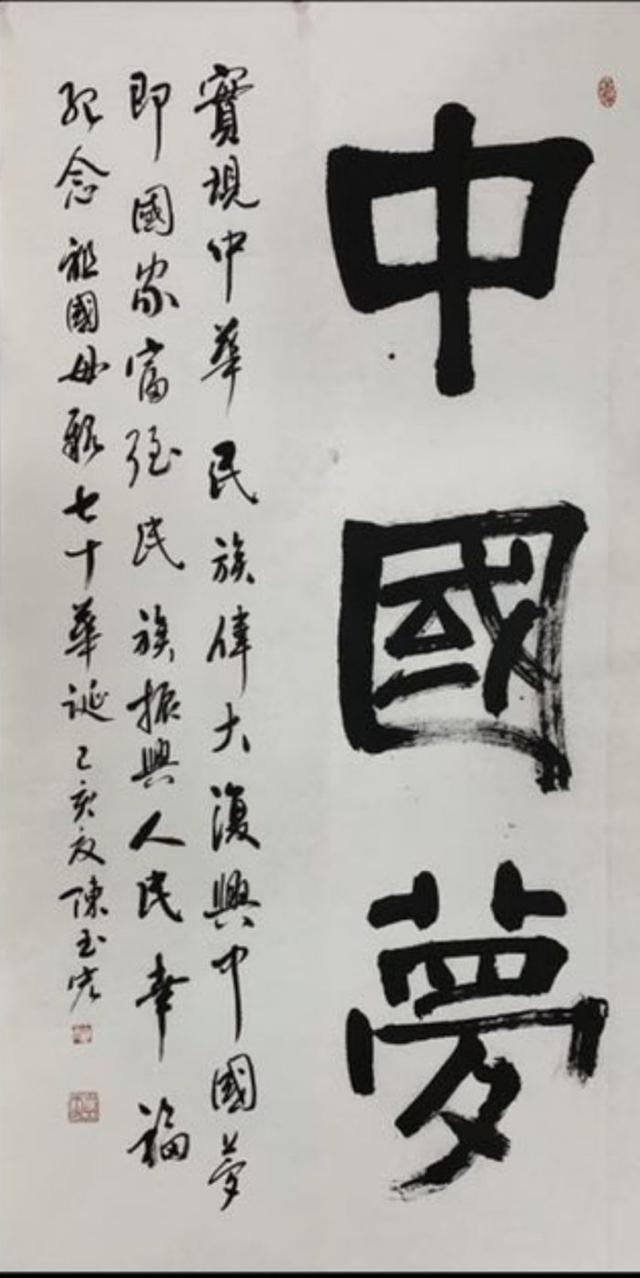 中國夢
實現中華民族偉大復興中國夢
即國家富強民族振興人民幸福
紀念祖國母親七十華誕己亥夏陳玉